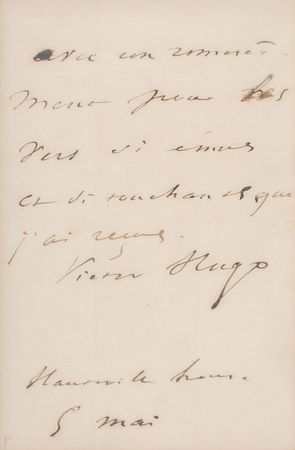 avec mon remercî-
ment pour les
vers si émus
et si touchants que
j'ai reçus.
Victor Hugo
Hauteville house
5 mai